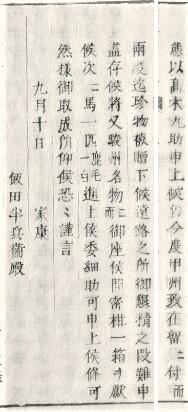 態以高木九助申上候仍今度甲州致在留ニ付而
兩度進珍物被贈下候遠路之所御懇情之段難申
盡存候將又駿州名物ニ而御座候間密柑一箱ヲ獻
候次ニ馬一匹鹿毛一白進上候委細助可申上候條可
然樣御取成所仰候恐〻謹言
九月十日
家康
飯田半兵衞殿